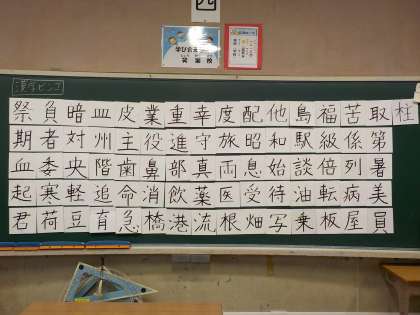 四
学び合える
漢字ビンゴ
祭負暗皿皮業重幸度配他島福苦取柱
期者対州主役進守旅昭和駅級係第
血委央階歯鼻部真両息始談倍列暑
起寒軽追命消飲薬医受待油転病美
君荷豆育急橋港流根畑写乗板屋員